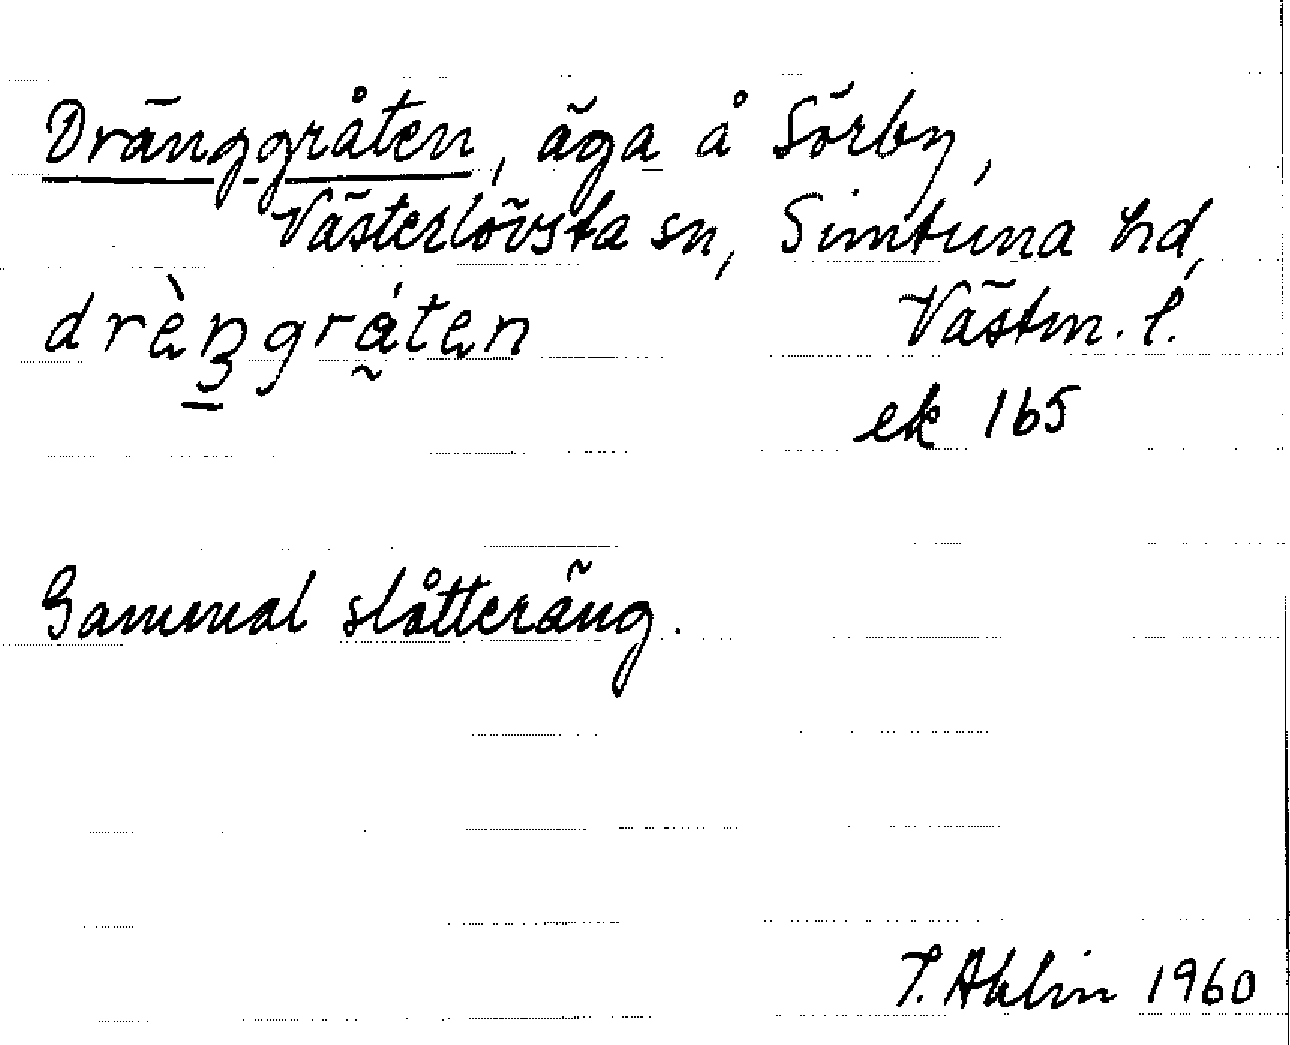 Dränggråten, äga å Sörby,
Västerlövsta sn, Simtuna hd,
drèngråten Västm. l.
ek 165
Gammal slåtteräng.
T. Ahlin 1960